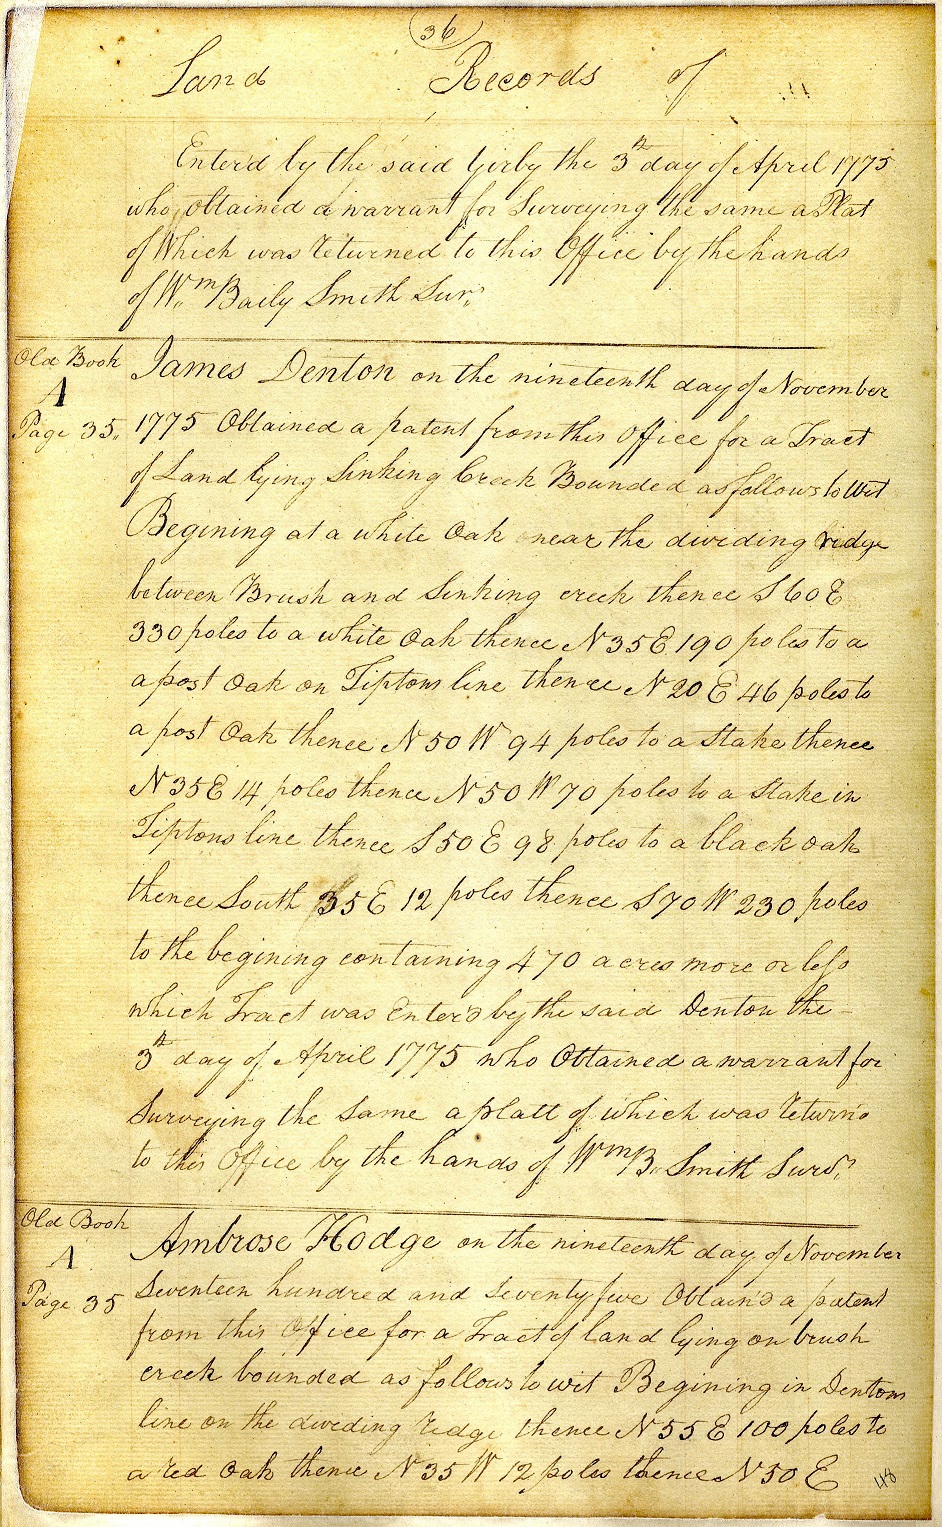 36
Land Records of
Enter'd by the said Girby the 3th day of April 1775
who obtained a warrant for Surveying the same a Plat
of Which was returned to this Office by the hands
of Wm Baily Smith Sur.
Old Book
A
Page 35.
James Denton on the nineteenth day of November
1775 Obtained a patent from this Office for a Tract
of Land lying Sinking Creek Bounded as follows to Wit
Begining at a white Oak near the dividing ridge
between Brush and Sinking creek thence S 60 E
330 poles to a white Oak thence N 35 E 190 poles to a
a post Oak on Tiptons line thence N 20 E 46 poles to
a post Oak thence N 50 W 94 poles to a Stake thence
N 35 E 14 poles thence N 50 W 70 poles to a Stake in
Tiptons line thence S 50 E 98 poles to a black oak
thence South 35 E 12 poles thence S 70 W 230 poles
to the begining containing 470 acres more or less
which Tract was Enter'd by the said Denton the
3th day of April 1775 who Obtained a warrant for
Surveying the Same a platt of which was return'd
to this Office by the hands of Wm B. Smith Surv.
Old Book
A
Page 35
Ambrose Hodge on the nineteenth day of November
Seventeen hundred and Seventy five Obtain'd a patent
from this Office for a Tract of land lying on brush
creek bounded as follows to wit Begining in Dentons
line on the dividing ridge thence N 55 E 100 poles to
a red Oak thence N 35 W 12 poles thence N 50 E
48